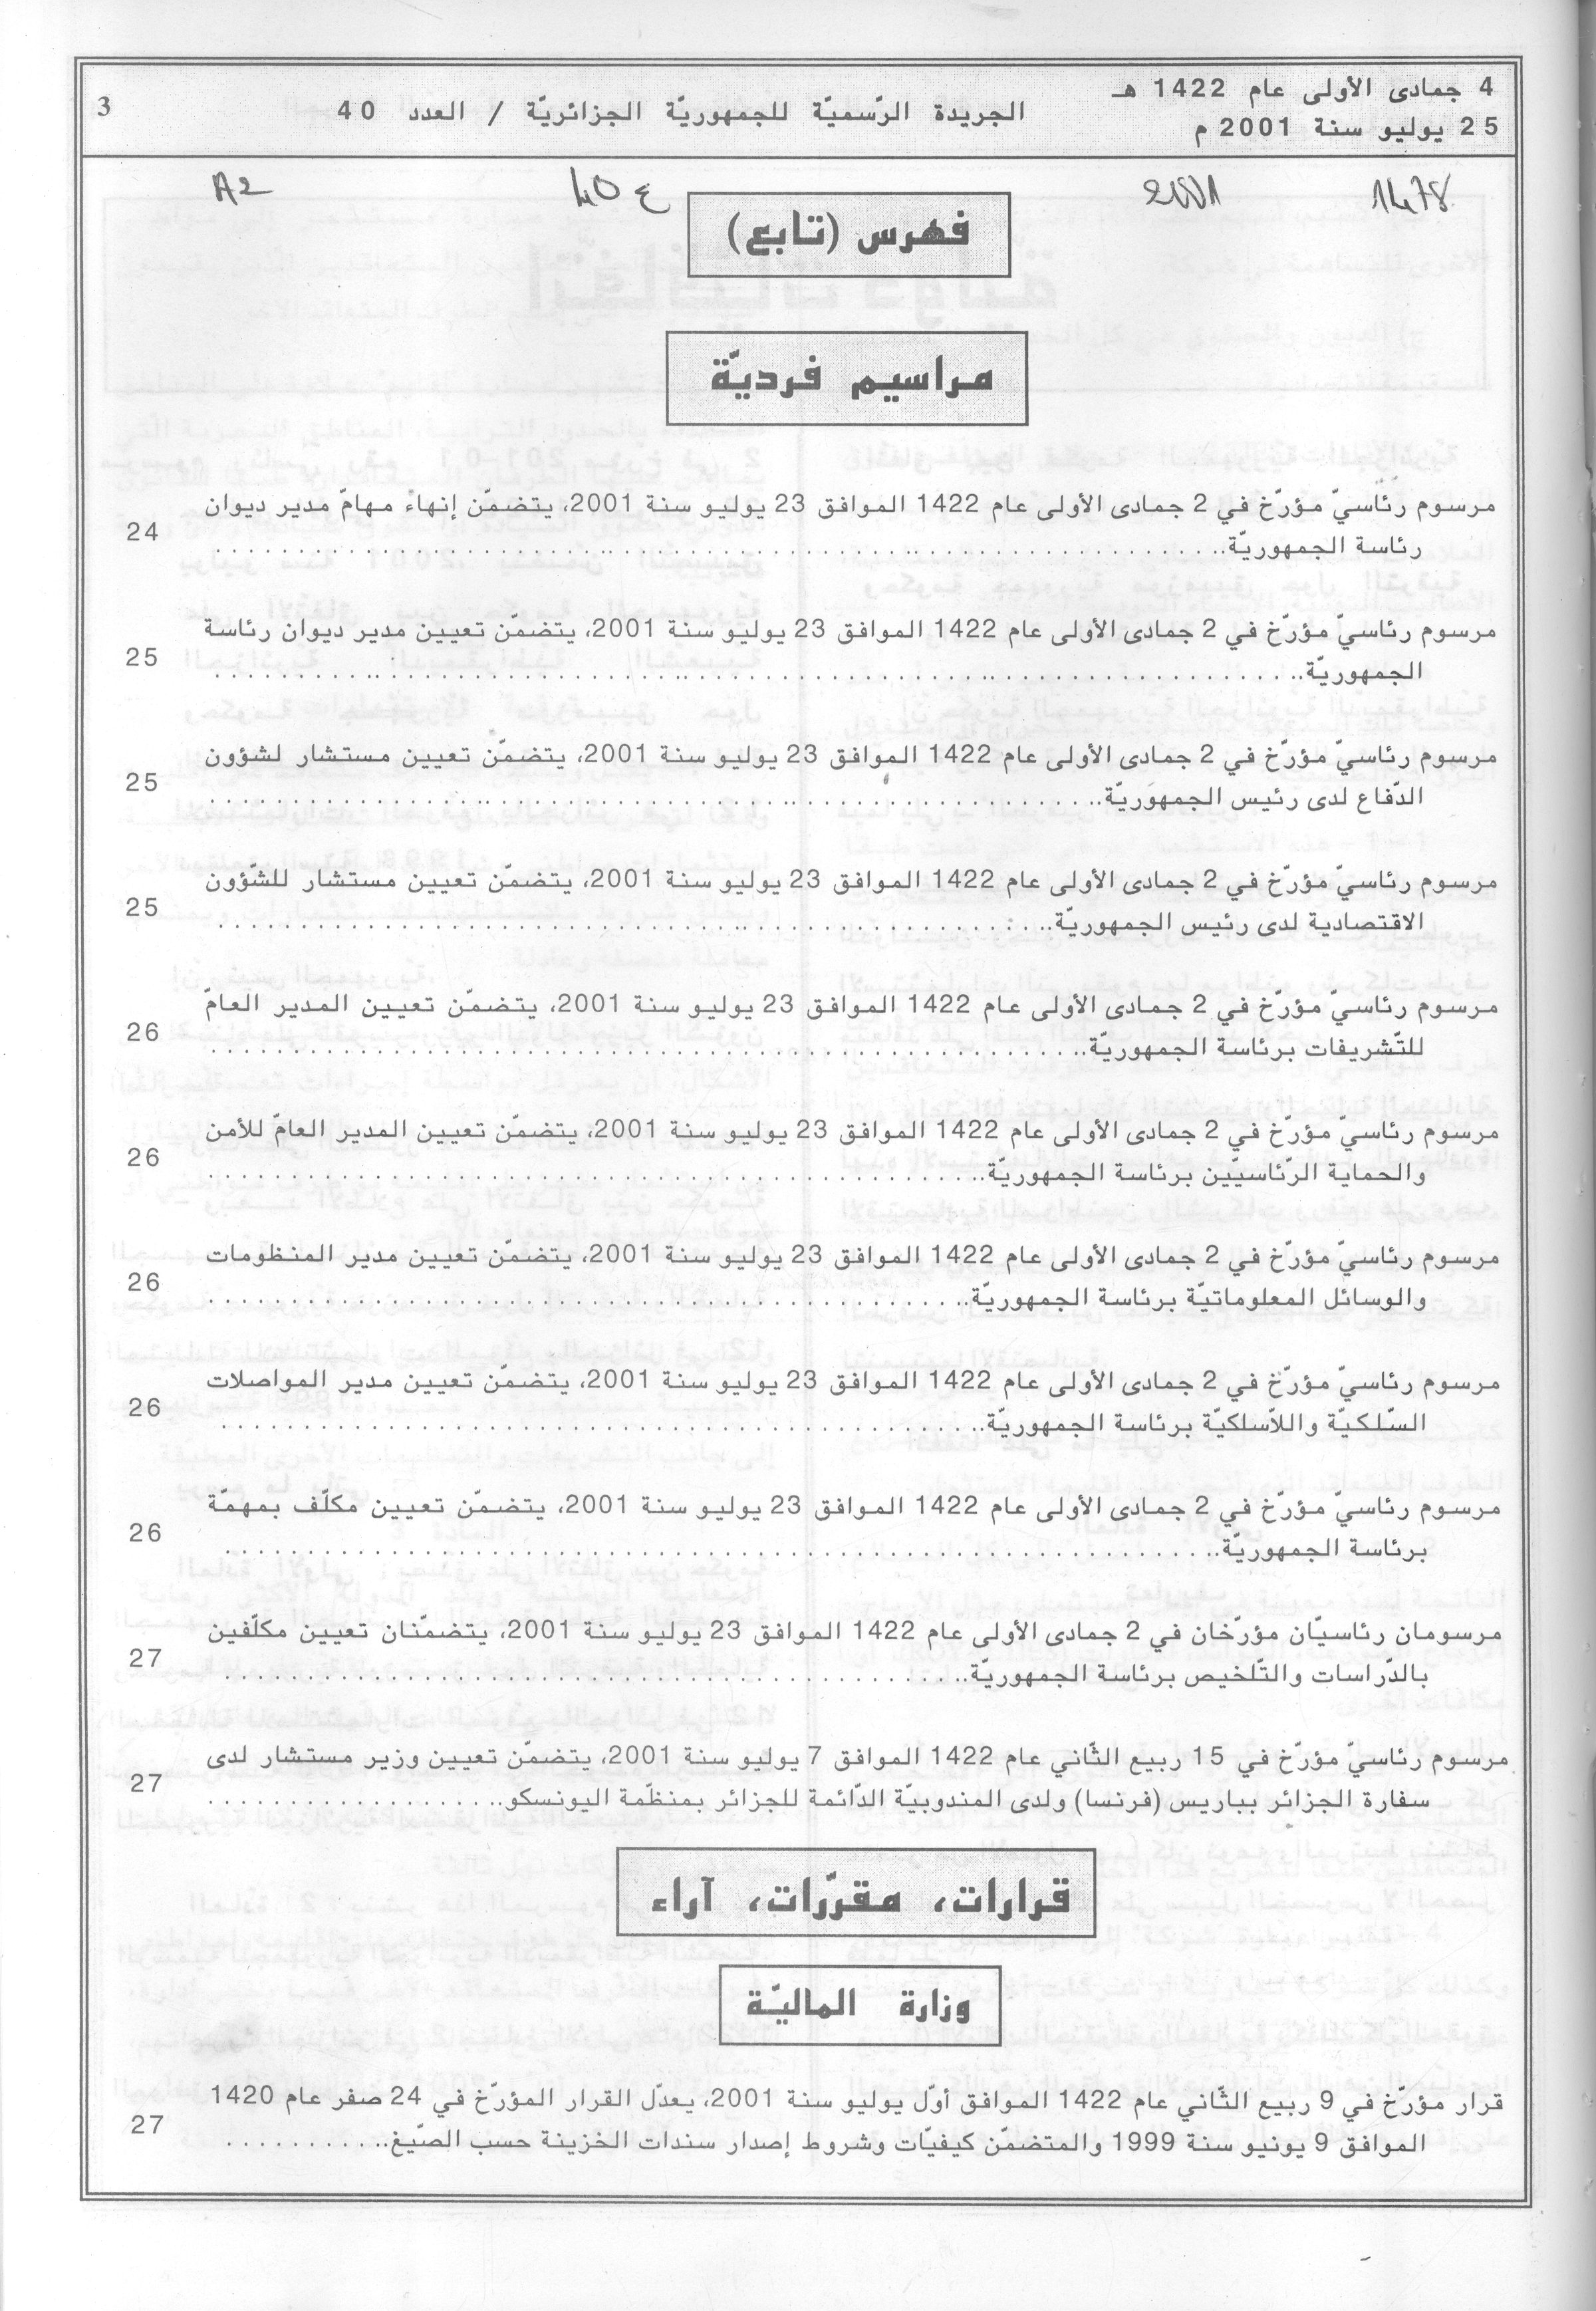 4 جمادى الأولى عام 1422 هـ
25 يوليو سنة 2001 م
الجريدة الرّسميّة للجمهوريّة الجزائريّة / العدد 40
3
1478
2001
ع 40
A2
فهرس (تابع)
مراسيم فرديّة
مرسوم رئاسيّ مؤرّخ في 2 جمادى الأولى عام 1422 الموافق 23 يوليو سنة 2001، يتضمّن إنهاء مهامّ مدير ديوان
رئاسة الجمهوريّة.. 24
مرسوم رئاسيّ مؤرّخ في 2 جمادى الأولى عام 1422 الموافق 23 يوليو سنة 2001، يتضمّن تعيين مدير ديوان رئاسة
الجمهوريّة.. 25
مرسوم رئاسيّ مؤرّخ في 2 جمادى الأولى عام 1422 الموافق 23 يوليو سنة 2001، يتضمّن تعيين مستشار لشؤون
الدّفاع لدى رئيس الجمهوريّة.. 25
مرسوم رئاسيّ مؤرّخ في 2 جمادى الأولى عام 1422 الموافق 23 يوليو سنة 2001، يتضمّن تعيين مستشار للشّؤون
الاقتصادية لدى رئيس الجمهوريّة.. 25
مرسوم رئاسيّ مؤرّخ في 2 جمادى الأولى عام 1422 الموافق 23 يوليو سنة 2001، يتضمّن تعيين المدير العامّ
للتّشريفات برئاسة الجمهوريّة.. 26
مرسوم رئاسيّ مؤرّخ في 2 جمادى الأولى عام 1422 الموافق 23 يوليو سنة 2001، يتضمّن تعيين المدير العامّ للأمن
والحماية الرّئاسيّين برئاسة الجمهوريّة.. 26
مرسوم رئاسيّ مؤرّخ في 2 جمادى الأولى عام 1422 الموافق 23 يوليو سنة 2001، يتضمّن تعيين مدير المنظومات
والوسائل المعلوماتيّة برئاسة الجمهوريّة.. 26
مرسوم رئاسيّ مؤرّخ في 2 جمادى الأولى عام 1422 الموافق 23 يوليو سنة 2001، يتضمّن تعيين مدير المواصلات
السّلكيّة واللاّسلكيّة برئاسة الجمهوريّة.. 26
مرسوم رئاسيّ مؤرّخ في 2 جمادى الأولى عام 1422 الموافق 23 يوليو سنة 2001، يتضمّن تعيين مكلّف بمهمّة
برئاسة الجمهوريّة.. 26
مرسومان رئاسيّان مؤرّخان في 2 جمادى الأولى عام 1422 الموافق 23 يوليو سنة 2001، يتضمّنان تعيين مكلّفين
بالدّراسات والتّلخيص برئاسة الجمهوريّة.. 27
مرسوم رئاسيّ مؤرّخ في 15 ربيع الثّاني عام 1422 الموافق 7 يوليو سنة 2001، يتضمّن تعيين وزير مستشار لدى
سفارة الجزائر بباريس (فرنسا) ولدى المندوبيّة الدّائمة للجزائر بمنظّمة اليونسكو.. 27
قرارات، مقرّرات، آراء
وزارة الماليّة
قرار مؤرّخ في 9 ربيع الثّاني عام 1422 الموافق أوّل يوليو سنة 2001، يعدّل القرار المؤرّخ في 24 صفر عام 1420
الموافق 9 يونيو سنة 1999 والمتضمّن كيفيّات وشروط إصدار سندات الخزينة حسب الصّيغ.. 27